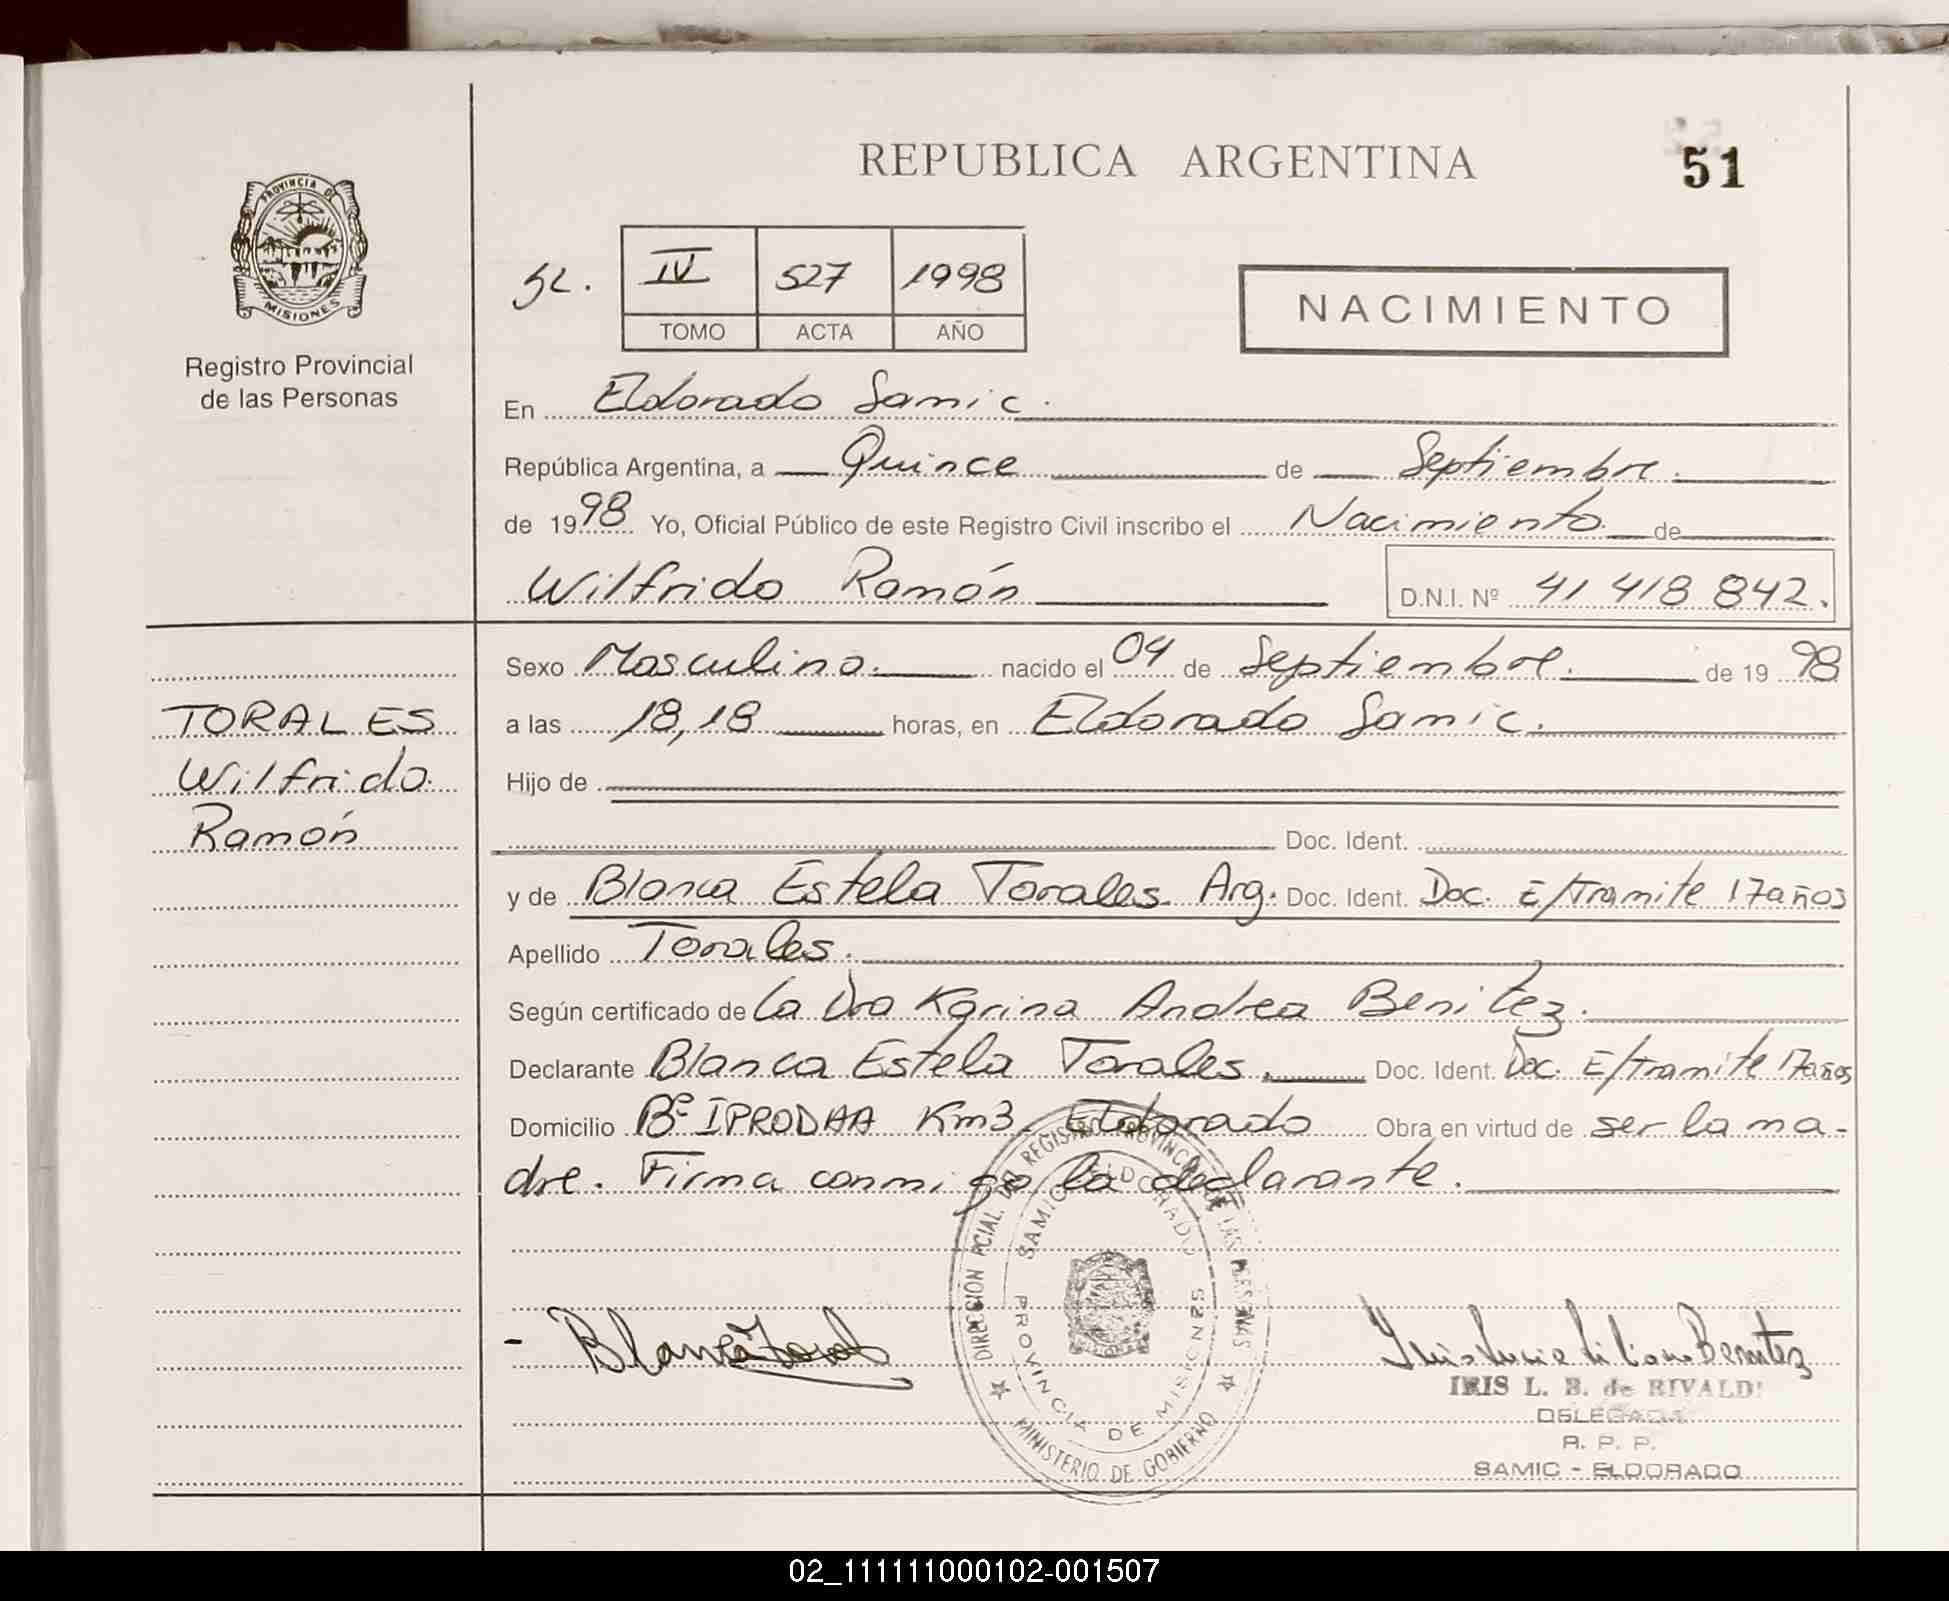 REPUBLICA ARGENTINA
51
PROVINCIA DE
MISIONES
Registro Provincial
de las Personas
IV 527 1998
TOMO ACTA AÑO
NACIMIENTO
En Eldorado Samic.
República Argentina, a Quince de Septiembre.
de 1998 Yo, Oficial Público de este Registro Civil inscribo el Nacimiento de
Wilfrido Ramón D.N.I. Nº 41 418 842.
TORALES
Wilfrido
Ramón
Sexo Masculino. nacido el 04 de Septiembre. de 1998
a las 18,18 horas, en Eldorado Samic.
Hijo de
Doc. Ident.
y de Blanca Estela Torales. Arg. Doc. Ident. Doc. E/Tramite 17años
Apellido Torales.
Según certificado de La Dra Karina Andrea Benitez.
Declarante Blanca Estela Torales. Doc. Ident. Doc. E/tramite 17años
Domicilio Bº IPRODHA Km3. Eldorado Obra en virtud de ser la ma-
dre. Firma conmigo la declarante.
DIRECCIÓN PCIAL. DEL REGISTRO PROVINCIAL DE LAS PERSONAS
MINISTERIO DE GOBIERNO
SAMIC ELDORADO
PROVINCIA DE MISIONES
Blanca Torales
Iris Lucia Liliana Benitez
IRIS L. B. de RIVALDI
DELEGADA
R. P. P.
SAMIC - ELDORADO
02_111111000102-001507